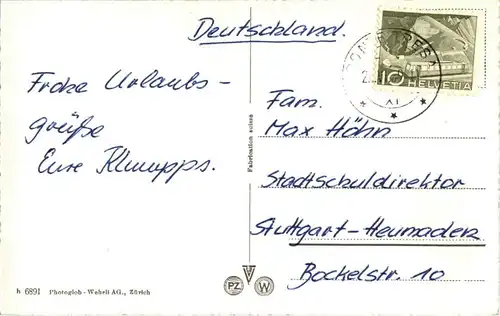 Deutschland.
PONTRESINA
10 HELVETIA
XI
Frohe Urlaubs-
grüße
Eure Klumpps.
Fam.
Max Höhn
Stadtschuldirektor
Stuttgart-Heumaden
Bockelstr. 10
Fabrication suisse
h 6891 Photoglob-Wehrli AG., Zürich
PZ W